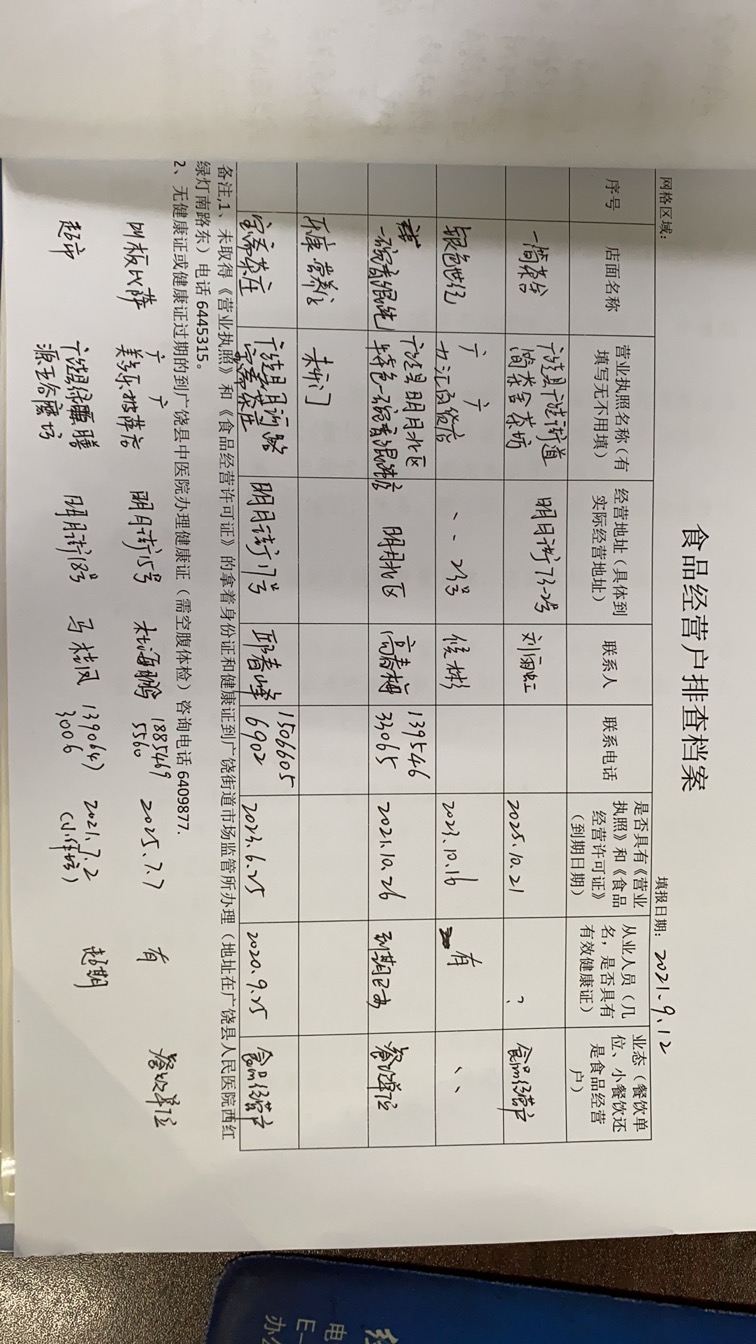 食品经营户排查档案
网格区域：
填报日期：2021.9.12
序号
店面名称
营业执照名称（有
填写无不用填）
经营地址（具体到
实际经营地址）
联系人
联系电话
是否具有《营业
执照》和《食品
经营许可证》
（到期日期）
从业人员（几
名，是否具有
有效健康证）
业态（餐饮单
位、小餐饮还
是食品经营
户）
一简茶舍
广饶县广饶街道
简茶舍茶坊
明月街73-2号
刘丽虹
2025.10.21
?
食品经营户
银色世纪
广 广
力汇百货店
〃 23号
侯彬
2023.10.16
有
〃
一碗香馄饨
广饶县明月北区
特色一碗香馄饨店
明月北区
高春梅
139546
33065
2021.10.26
到期已办
餐饮单位
乐康营养
未开门
宝斋茶庄
广饶县月河路
宝斋茶庄
明月街17号
邱春峰
1506605
6902
2023.6.25
2020.9.25
食品经营户
备注,1、未取得《营业执照》和《食品经营许可证》的拿着身份证和健康证到广饶街道市场监管所办理（地址在广饶县人民医院西红
绿灯南路东）电话 6445315。
2、无健康证或健康证过期的到广饶县中医院办理健康证（需空腹体检）咨询电话 6409877.
比萨
广 广
美乐披萨店
明月街15号
杜海鹏
1885469
5560
2025.7.7
有
餐饮单位
超市
源王谷磨坊
明月街18号
马桂凤
1390647
3006
2021.7.2
（小作坊）
超期
经
电
E—
办公